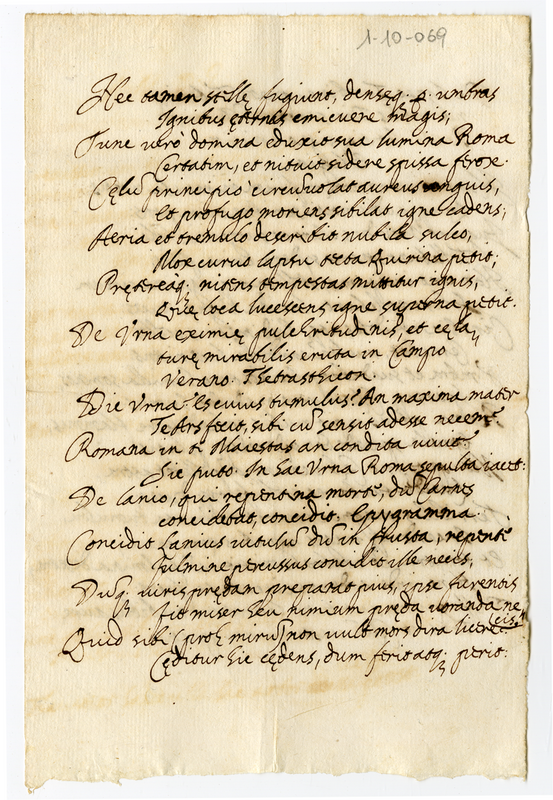 1-10-069
Hec tamen stellę fugiunt, densęq. p. umbras
Ignibus ęternis emicuere magis;
Tunc verò domina eduxit sua lumina Roma
Certatim, et nituit sidere spissa ferox.
Cęlū principiò circūuolat aureus anguis,
Et profugo moriens sibilat igne cadens;
Aeria et tremulo describit nubila sulco,
Mox curuo lapsu tecta Quirina petit;
Pręterèaq. nitens tempestas mittitur ignis,
Quę loca lucescens igne superna petit.
De Vrna eximię pulchritudinis, et cęla„
turę mirabilis eruta in Campo
Verano. Thetrasthicon.
Dic Vrna? Es cuius tumulus? An maxima mater
Te Ars fecit, sibi cū sensit adesse necem?
Romana in te Maiestas an condita viuit?
Sic puto. In hac Vrna Roma sepulta iacet.
De lanio, qui repentina morte, dū Carnes
concidebat, concidit. Epygramma.
Concidit Lanius uitulū dū in frusta, repentè
Fulmine percussus concidit ille necis;
Dūq. uiris prędam preparat pius, ipse furentis
Fit miser heu nimium pręda uoranda necis.
Quid sibi (proh mirū) non uult mors dira licere?
Cęditur hic cędens, dum ferit atq. perit.